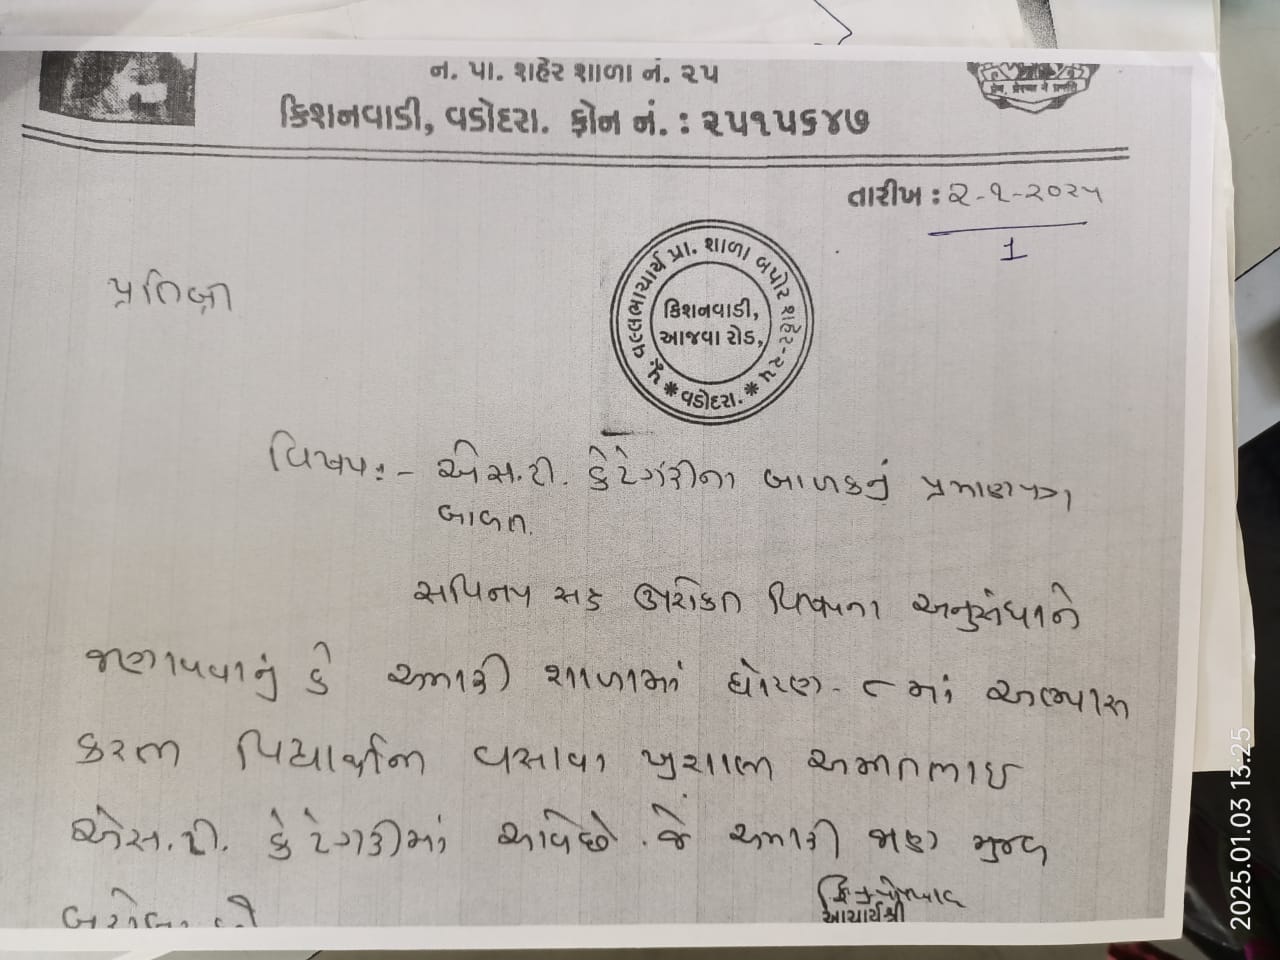 ન. પા. શહેર શાળા નં. ૨૫
કિશનવાડી, વડોદરા. ફોન નં. : ૨૫૧૫૬૪૭
તારીખ : ૨-૧-૨૦૨૫
1
મ. વલ્લભાચાર્ય પ્રા. શાળા બપોર શહેર-૨૫
કિશનવાડી,
આજવા રોડ,
* વડોદરા. *
પ્રતિશ્રી
વિષય:- એસ.ટી. કેટેગરીના બાળકનું પ્રમાણપત્ર
બાબત.
સવિનય સહ ઉપરોકત વિષયના અનુસંધાને
જણાવવાનું કે અમારી શાળામાં ધોરણ-૮ માં અભ્યાસ
કરતા વિદ્યાર્થીના વસાવા ખુશાલ અમરતભાઈ
એસ.ટી. કેટેગરીમાં આવેછે. જે અમારી જાણ મુજબ
બરોબર છે
આચાર્યશ્રી
2025.01.03 13:25